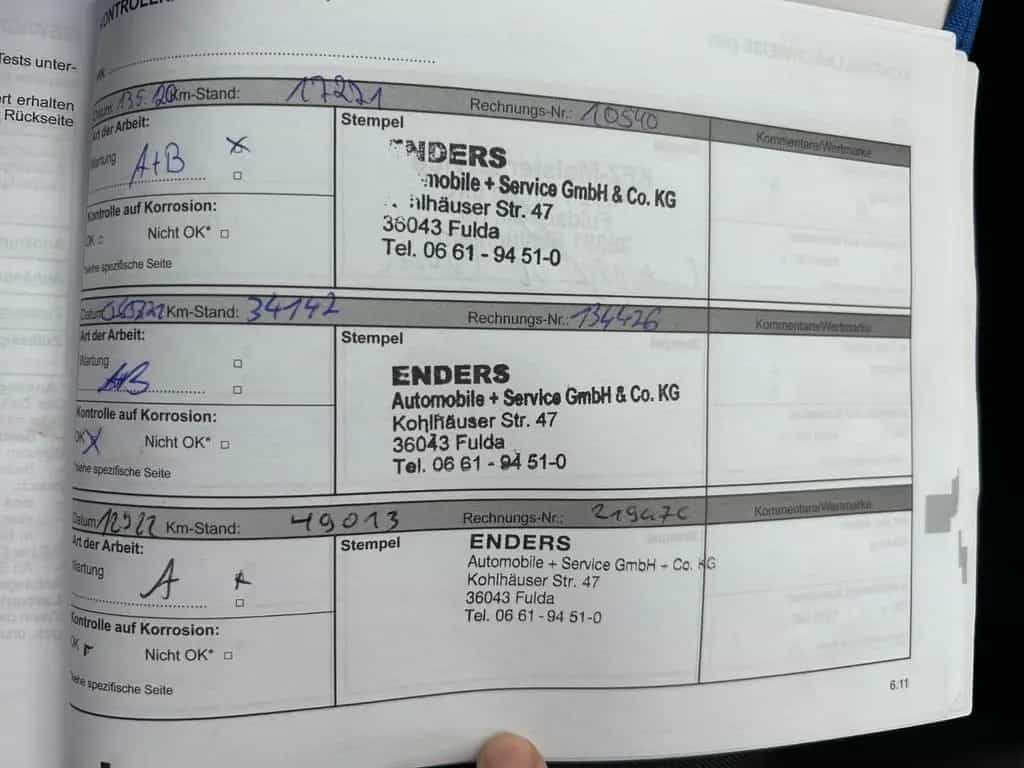 Tests unter-
rt erhalten
Rückseite
Datum 13.5.20 Km-Stand: 17271 Rechnungs-Nr.: 10540 Kommentare/Wertmarke
Art der Arbeit: Stempel
Wartung A+B
ENDERS
mobile + Service GmbH & Co. KG
hlhäuser Str. 47
36043 Fulda
Tel. 06 61 - 94 51-0
Kontrolle auf Korrosion:
OK Nicht OK*
*siehe spezifische Seite
Datum Km-Stand: 34142 Rechnungs-Nr.: 134426 Kommentare/Wertmarke
Art der Arbeit: Stempel
Wartung
A+B
ENDERS
Automobile + Service GmbH & Co. KG
Kohlhäuser Str. 47
36043 Fulda
Tel. 06 61 - 94 51-0
Kontrolle auf Korrosion:
OK X Nicht OK*
*siehe spezifische Seite
Datum 12922 Km-Stand: 49013 Rechnungs-Nr.: Kommentare/Wertmarke
Art der Arbeit: Stempel
Wartung A
ENDERS
Automobile + Service GmbH + Co. KG
Kohlhäuser Str. 47
36043 Fulda
Tel. 06 61 - 94 51-0
Kontrolle auf Korrosion:
OK Nicht OK*
*siehe spezifische Seite
6.11